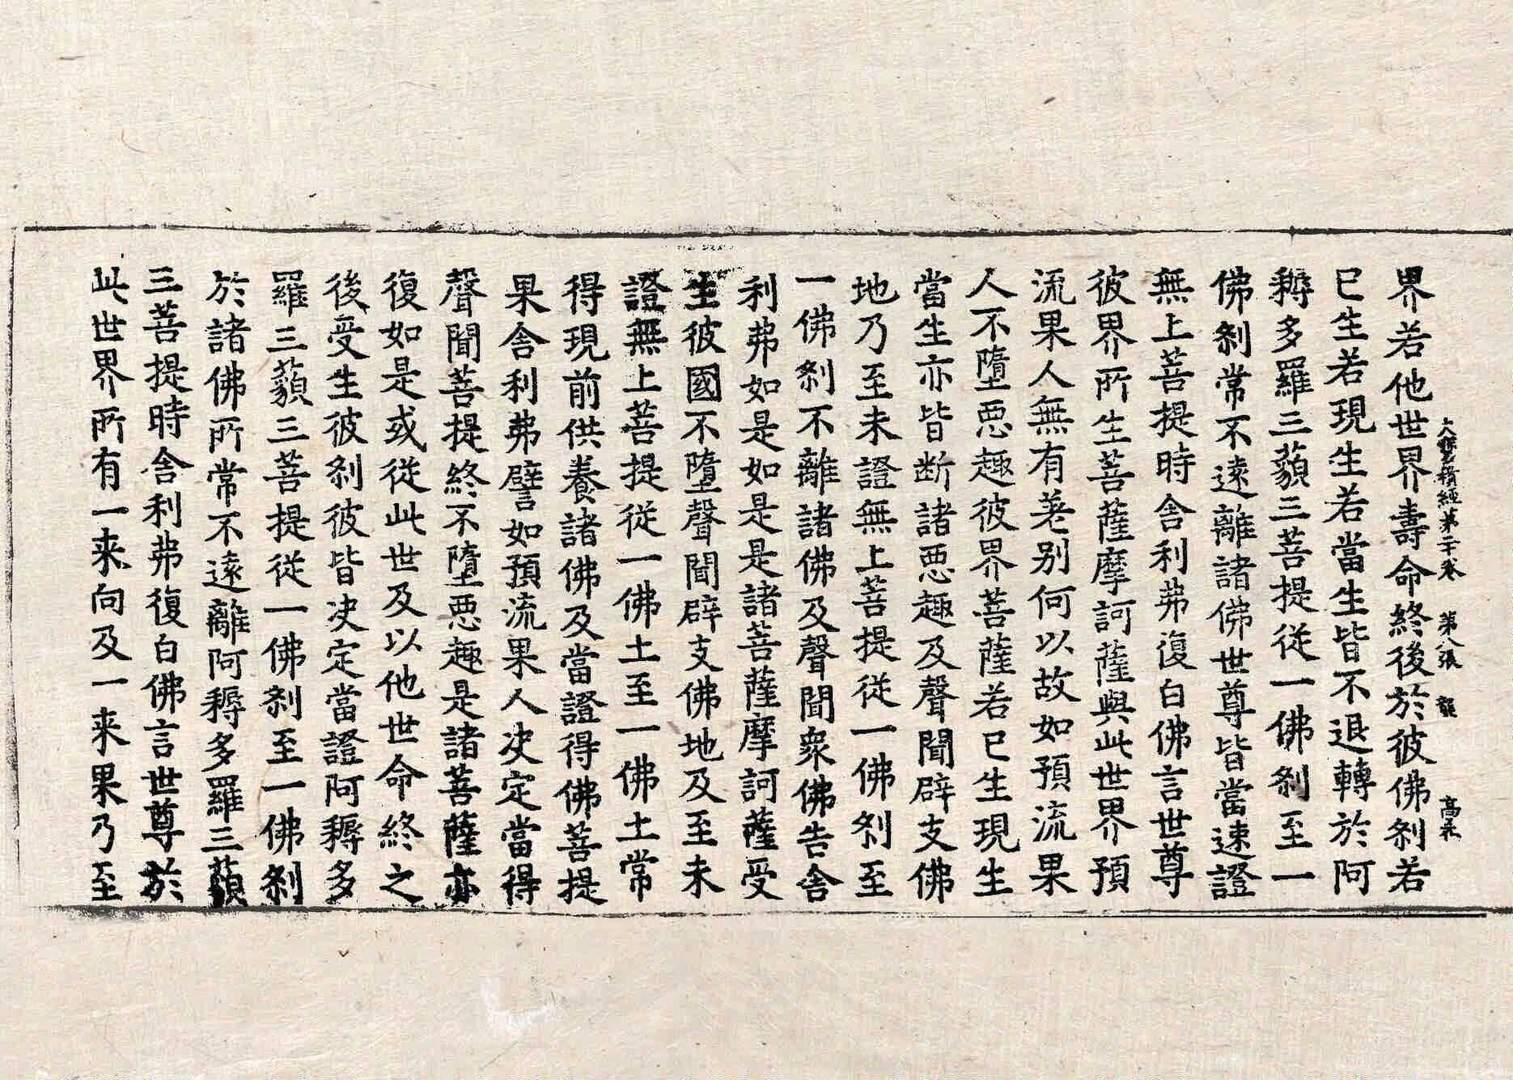 大寶積經第二十卷 第八張 龍 高
界若他世界壽命終後於彼佛刹若
已生若現生若當生皆不退轉於阿
耨多羅三藐三菩提從一佛刹至一
佛刹常不遠離諸佛世尊皆當速證
無上菩提時舍利弗復白佛言世尊
彼界所生菩薩摩訶薩與此世界預
流果人無有差别何以故如預流果
人不墮悪趣彼界菩薩若已生現生
當生亦皆断諸悪趣及聲聞辟支佛
地乃至未證無上菩提從一佛刹至
一佛刹不離諸佛及聲聞衆佛告舍
利弗如是如是是諸菩薩摩訶薩受
生彼國不墮聲聞辟支佛地及至未
證無上菩提從一佛土至一佛土常
得現前供養諸佛及當證得佛菩提
果舍利弗譬如預流果人决定當得
聲聞菩提終不墮悪趣是諸菩薩亦
復如是或從此世及以他世命終之
後受生彼刹彼皆决定當證阿耨多
羅三藐三菩提從一佛刹至一佛刹
於諸佛所常不遠離阿耨多羅三藐
三菩提時舍利弗復白佛言世尊於
此世界所有一来向及一来果乃至